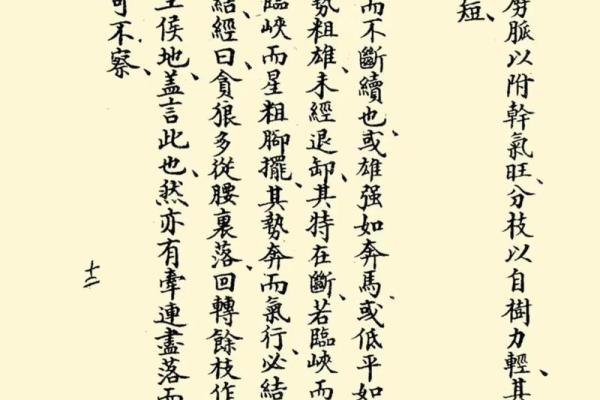 旁脈以附幹氣旺、分枝以自樹力輕、其
短、
而不斷續也、或雄强如奔馬、或低平如
勢粗雄、未經退卸、其特在斷、若臨峽而
臨峽而星粗脚擺、其勢奔而氣行、必結
結、經曰、貪狼多從腰裏落、回轉餘枝作
王侯地、盖言此也、然亦有牽連盡落而
可不察、
十二